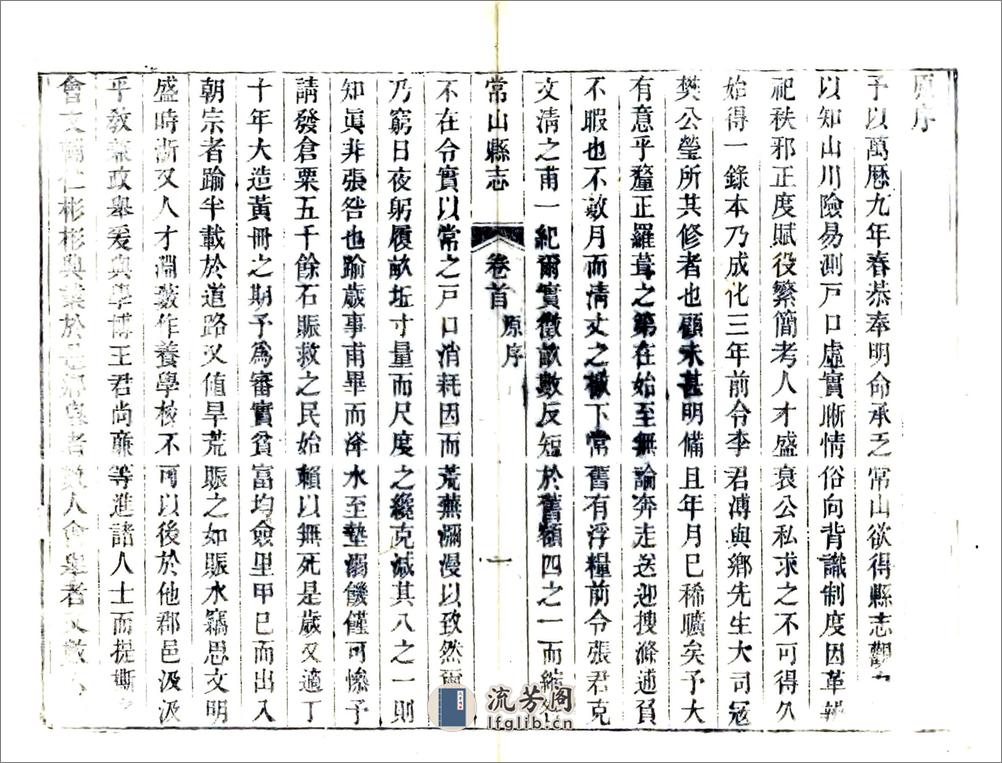 原序
予以萬曆九年春恭奉明命承乏常山欲得縣志觀
以知山川險易測戸口虛實晰情俗向背識制度因革報
祀秩邪正度賦役繁簡考人才盛衰公私求之不可得久
始得一錄本乃成化三年前令李君溥與鄉先生大司寇
樊公瑩所其修者也顧未甚明備且年月已稀曠矣予大
有意乎釐正羅葺之第在始至無論奔走送迎搜滌逋負
不暇也不敢月而清丈之檄下常舊有浮糧前令張君克
文清之甫一紀爾實徵畝數反短於舊額四之一而
常山縣志
卷首
原序
一
不在令實以常之戸口消耗因而荒蕪瀰漫以致然爾
乃窮日夜躬履畝坵寸量而尺度之纔克減其八之一則
知眞非張咎也踰歲事甫畢而洚水至墊溺饑僅可慘予
請發倉粟五千餘石賑救之民始賴以無死是歲又適丁
十年大造黃冊之期予爲審實貧富均僉里甲已而出入
朝宗者踰半載於道路又値旱荒賑之如賑水竊思文明
盛時浙又人才淵藪作養學校不可以後於他郡邑汲汲
乎敎兼政舉爰與學博王君尚廉等進諸人士而提撕
會文輔仁彬彬與業於是
者數人會舉者又數
流芳阁
lfglib.cn